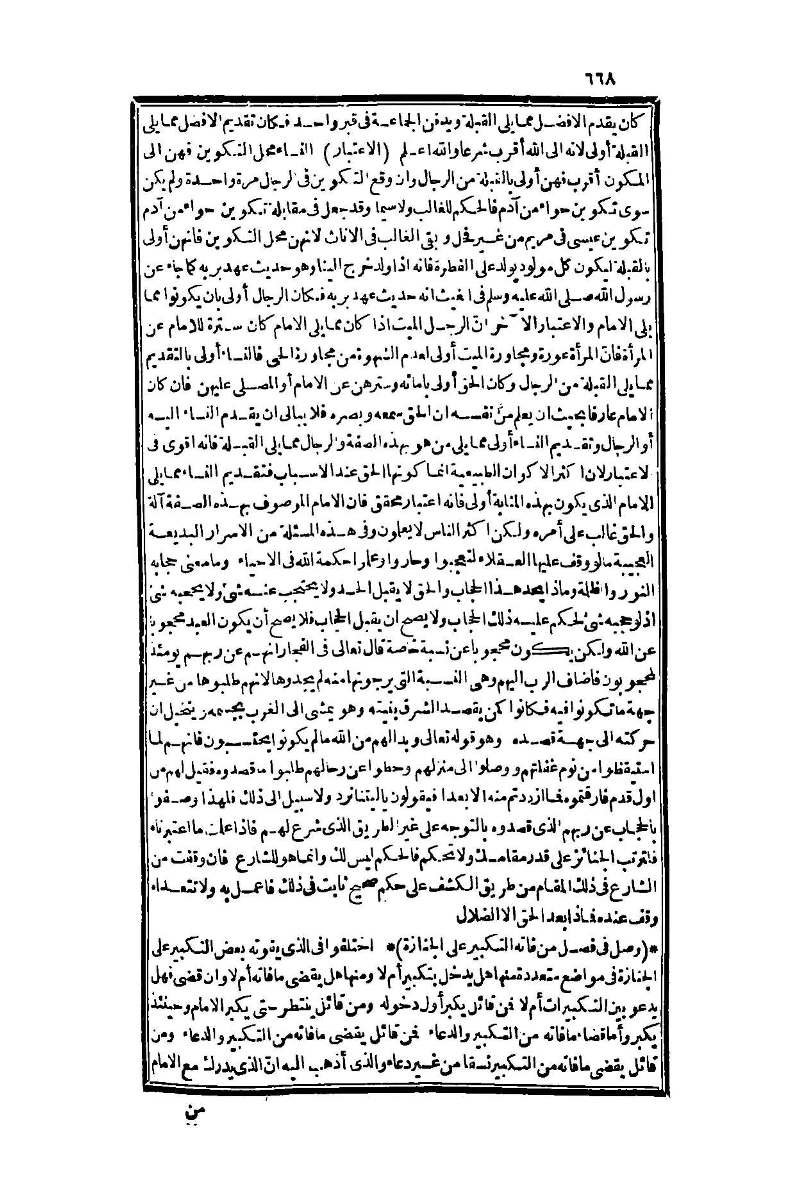 ٦٦٨
كان يقدم الافضل مما يلى القبلة ويدفن الجماعة فى قبر واحد فكان تقديم الافضل مما يلى
القبلة أولى لانه الى الله أقرب شرعا والله اعلم (الاعتبار) النساء محل التكوين فهن الى
المكون أقرب فهن أولى بالقبلة من الرجال وان وقع التكوين فى الرجال مرة واحدة ولم يكن
سوى تكوين حواء من آدم فالحكم للغالب ولاسيما وقد جعل فى مقابلة تكوين حواء من آدم
تكوين عيسى فى مريم من غير فحل وبقى الغالب فى الاناث لانهن محل التكوين فانهن أولى
بالقبلة ليكون كل مولود يولد على الفطرة فانه اذا ولد خرج الينا وهو حديث عهد بربه كما جاء عن
رسول الله صلى الله عليه وسلم فى الغيث انه حديث عهد بربه فكان الرجال أولى بان يكونوا مما
يلى الامام والاعتبار الآخر انّ الرجل الميت اذا كان مما يلى الامام كان سترة للامام عن
المرأة فانّ المرأة عورة ومجاورة الميت أولى لعدم الشهوة من مجاورة الحى فالنساء أولى بالتقديم
مما يلى القبلة من الرجال وكان الحق أولى بامائه وسترهن عن الامام أو المصلى عليهن فان كان
الامام عارفا بحيث ان يعلم من نفسه ان الحق سمعه وبصره فلا يبالى ان يقدم النساء اليه
أو الرجال وتقديم النساء أولى مما يلى من هو بهذه الصفة والرجال مما يلى القبلة فانه اقوى فى
الاعتبار لان اكثر الاكوان الطبيعية انما كونها الحق عند الاسباب فتقديم النساء مما يلى
الامام الذى يكون بهذه المثابة أولى فانه اعتبار محقق فان الامام الموصوف بهذه الصفة آلة
والحق غالب على أمره ولكن اكثر الناس لا يعلمون وفى هذه المسئلة من الاسرار البديعة
العجيبة ما لو وقف عليها العقلاء لتعجبوا وحاروا وعلموا حكمة الله فى الاحياء وما معنى حجابه
النور والظلمة وماذا يحد هذا الحجاب والحق لا يقبل الحد ولا يحتجب عنه شئ ولا يحجبه شئ
اذ لو حجبه شئ لحكم عليه ذلك الحجاب ولا يصح ان يقبل الحجاب فلا يصح أن يكون العبد محجوبا
عن الله ولكن يكون محجوبا عن نسبة خاصة قال تعالى فى الفجار انهم عن ربهم يومئذ
لمحجوبون فاضاف الرب اليهم وهى النسبة التى يرجونها منه لم يجدوها لانهم طلبوها من غير
جهة ما تكون فيه فكانوا كمن يقصد الشرق بنيته وهو يمشى الى الغرب بجسمه ويتخيل ان
حركته الى جهة قصده وهو قوله تعالى وبدا لهم من الله مالم يكونوا يحتسبون فانهم لما
استيقظوا من نوم غفلتهم ووصلوا الى منزلهم وحطوا عن رحالهم طلبوا ما قصدوه فقيل لهم من
اول قدم فارقتموه فما ازددتم منه الا بعدا فيقولون ياليتنا نرد ولا سبيل الى ذلك فلهذا وصفوا
بالحجاب عن ربهم الذى قصدوه بالتوجه على غير الطريق الذى شرع لهم فاذا علمت ما اعتبرناه
فلترتب الجنائز على قدر مقامك ولا تتحكم فالحكم ليس لك وانما هو للشارع فان وقفت من
الشارع فى ذلك المقام من طريق الكشف على حكم صحيح ثابت فى ذلك فاعمل به ولا تتعداه
وقف عنده فماذا بعد الحق الا الضلال
*(وصل فى فصل من فاته التكبير على الجنازة)* اختلفوا فى الذى يفوته بعض التكبير على
الجنازة فى مواضع متعددة منها هل يدخل بتكبير أم لا ومنها هل يقضى ما فاته أم لا وان قضى فهل
يدعو بين التكبيرات أم لا فمن قائل يكبر أول دخوله ومن قائل ينتظر حتى يكبر الامام وحينئذ
يكبر وأما قضاء ما فاته من التكبير والدعاء فمن قائل يقضى ما فاته من التكبير والدعاء ومن
قائل يقضى ما فاته من التكبير نسقا من غير دعاء والذى أذهب اليه انّ الذى يدرك مع الامام
من